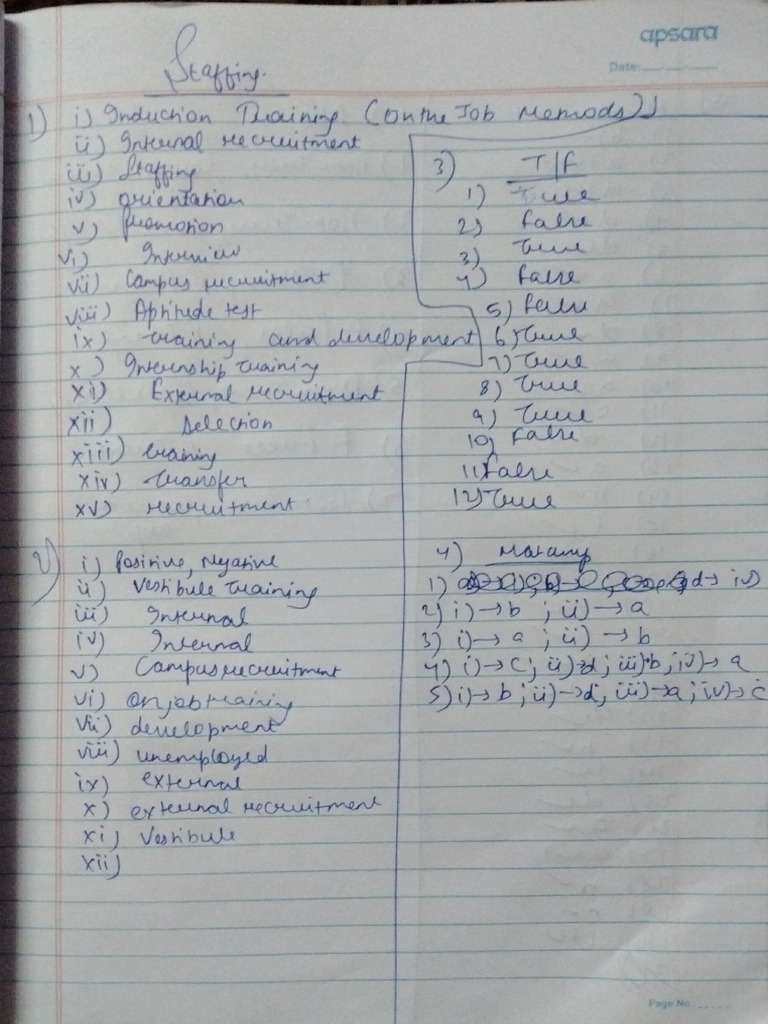 apsara
Date:
Staffing.
1) i) Induction Training (On the Job Methods)
ii) Internal recruitment
iii) Staffing
iv) orientation
v) promotion
vi) Interview
vii) Campus recruitment
viii) Aptitude test
ix) training and development
x) Internship training
xi) External recruitment
xii) Selection
xiii) training
xiv) transfer
xv) recruitment
2) i) positive, Negative
ii) Vestibule training
iii) Internal
iv) Internal
v) Campus recruitment
vi) On job training
vii) development
viii) unemployed
ix) external
x) external recruitment
xi) Vestibule
xii)
3) T/F
1) True
2) False
3) True
4) False
5) False
6) True
7) True
8) True
9) True
10) False
11) False
12) True
4)
1) d→ iv)
2) i) → b ; ii) → a
3) i) → a ; ii) → b
4) i) → c ; ii) → d ; iii) b, iv) → a
5) i) → b ; ii) → d, iii) → a ; iv) → c
Page No.: